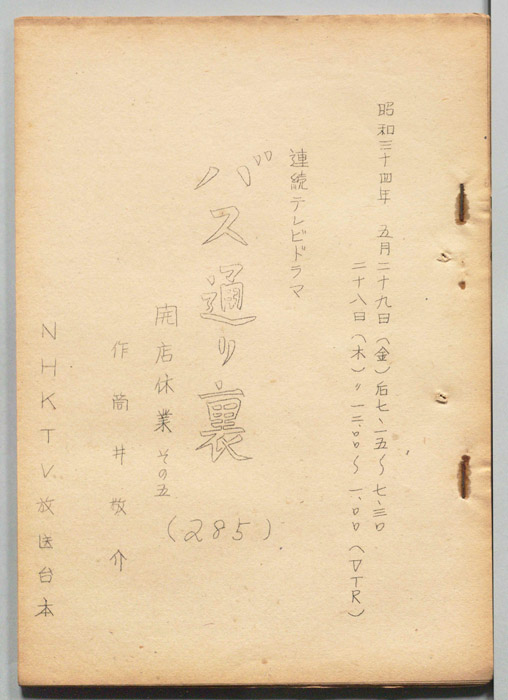 昭和三十四年 五月二十九日(金)后七、一五〜七、三〇
二十八日(木)〃一二、〇〇〜一、〇〇(VTR)
連続テレビドラマ
バス通り裏
(285)
開店休業 その五
作 筒井敬介
NHKTV放送台本